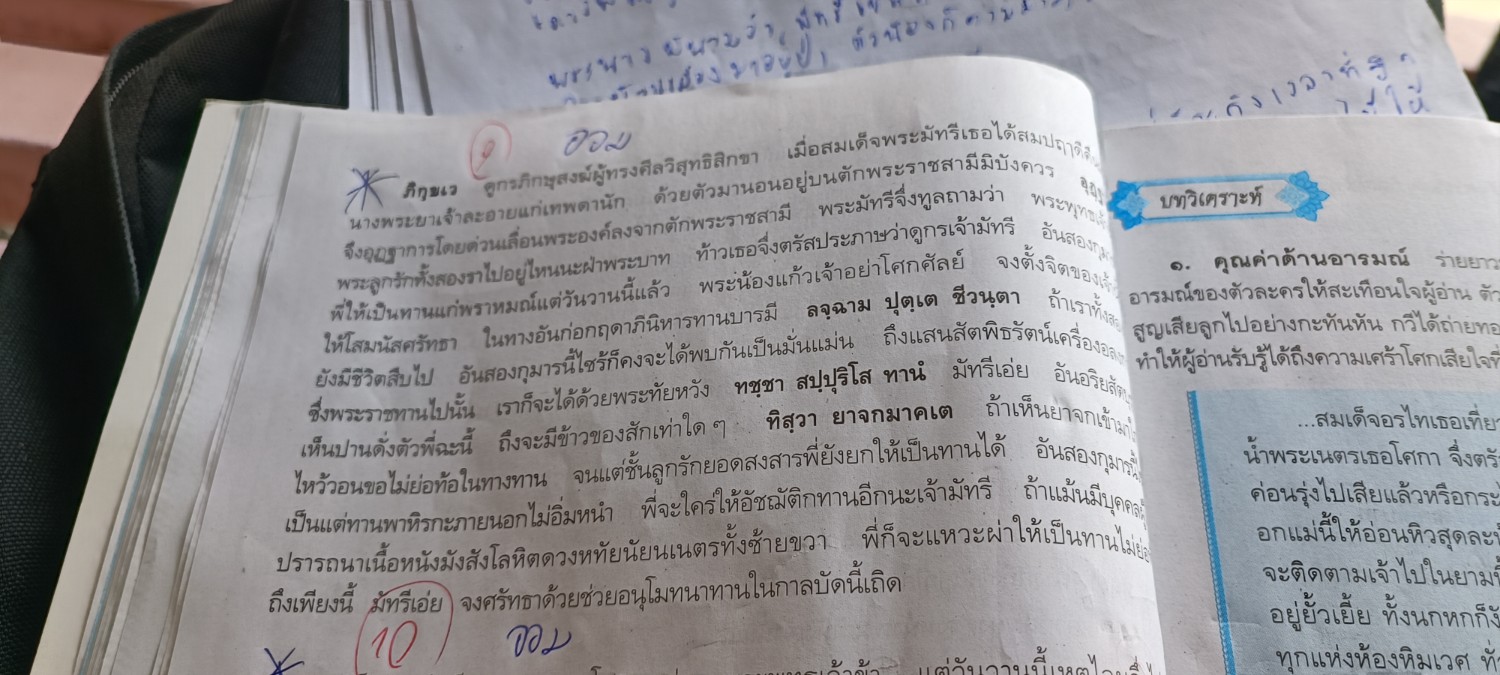 ๙ ออม
ภิกฺขเว ดูกรภิกษุสงฆ์ผู้ทรงศีลวิสุทธิสิกขา เมื่อสมเด็จพระมัทรีเธอได้สมปฤาดีคืน
นางพระยาเจ้าละอายแก่เทพดานัก ด้วยตัวมานอนอยู่บนตักพระราชสามีมิบังควร
จึ่งอุฏฐาการโดยด่วนเลื่อนพระองค์ลงจากตักพระราชสามี พระมัทรีจึ่งทูลถามว่า
พระลูกรักทั้งสองราไปอยู่ไหนนะฝ่าพระบาท ท้าวเธอจึ่งตรัสประภาษว่าดูกรเจ้ามัทรี อันสองกุมาร
พี่ให้เป็นทานแก่พราหมณ์แต่วันวานนี้แล้ว พระน้องแก้วเจ้าอย่าโศกศัลย์ จงตั้งจิตของเจ้า
ให้โสมนัสศรัทธา ในทางอันก่อกฤดาภินิหารทานบารมี ลจฺฉาม ปุตฺเต ชีวนฺตา ถ้าเราทั้งสอง
ยังมีชีวิตสืบไป อันสองกุมารนี้ไซร้ก็คงจะได้พบกันเป็นมั่นแม่น ถึงแสนสัตพิธรัตน์เครื่อง
ซึ่งพระราชทานไปนั้น เราก็จะได้ด้วยพระทัยหวัง ทชฺชา สปฺปุริโส ทานํ มัทรีเอ่ย
เห็นปานดั่งตัวพี่ฉะนี้ ถึงจะมีข้าวของสักเท่าใด ๆ ทิสฺวา ยาจกมาคเต ถ้าเห็นยาจกเข้ามา
ไหว้วอนขอไม่ย่อท้อในทางทาน จนแต่ชั้นลูกรักยอดสงสารพี่ยังยกให้เป็นทานได้ อันสองกุมารนี้
เป็นแต่ทานพาหิรกะภายนอกไม่อิ่มหนำ พี่จะใคร่ให้อัชฌัติกทานอีกนะเจ้ามัทรี ถ้าแม้นมีบุคคล
ปรารถนาเนื้อหนังมังสังโลหิตดวงหทัยนัยนเนตรทั้งซ้ายขวา พี่ก็จะแหวะผ่าให้เป็นทานไม่
ถึงเพียงนี้ มัทรีเอ่ย จงศรัทธาด้วยช่วยอนุโมทนาทานในกาลบัดนี้เถิด
10 ออม
บทวิเคราะห์
๑. คุณค่าด้านอารมณ์ ร่ายยาว
อารมณ์ของตัวละครให้สะเทือนใจผู้อ่าน
สูญเสียลูกไปอย่างกะทันหัน กวีได้ถ่ายทอ
ทำให้ผู้อ่านรับรู้ได้ถึงความเศร้าโศกเสียใจที่
...สมเด็จอรไทเธอเที่ย
น้ำพระเนตรเธอโศกา จึ่งตรั
ค่อนรุ่งไปเสียแล้วหรือกระ
อกแม่นี้ให้อ่อนหิวสุดละ
จะติดตามเจ้าไปในยามนี้
อยู่ยั้วเยี้ย ทั้งนกหกก็
ทุกแห่งห้องหิมเวศ ทั่